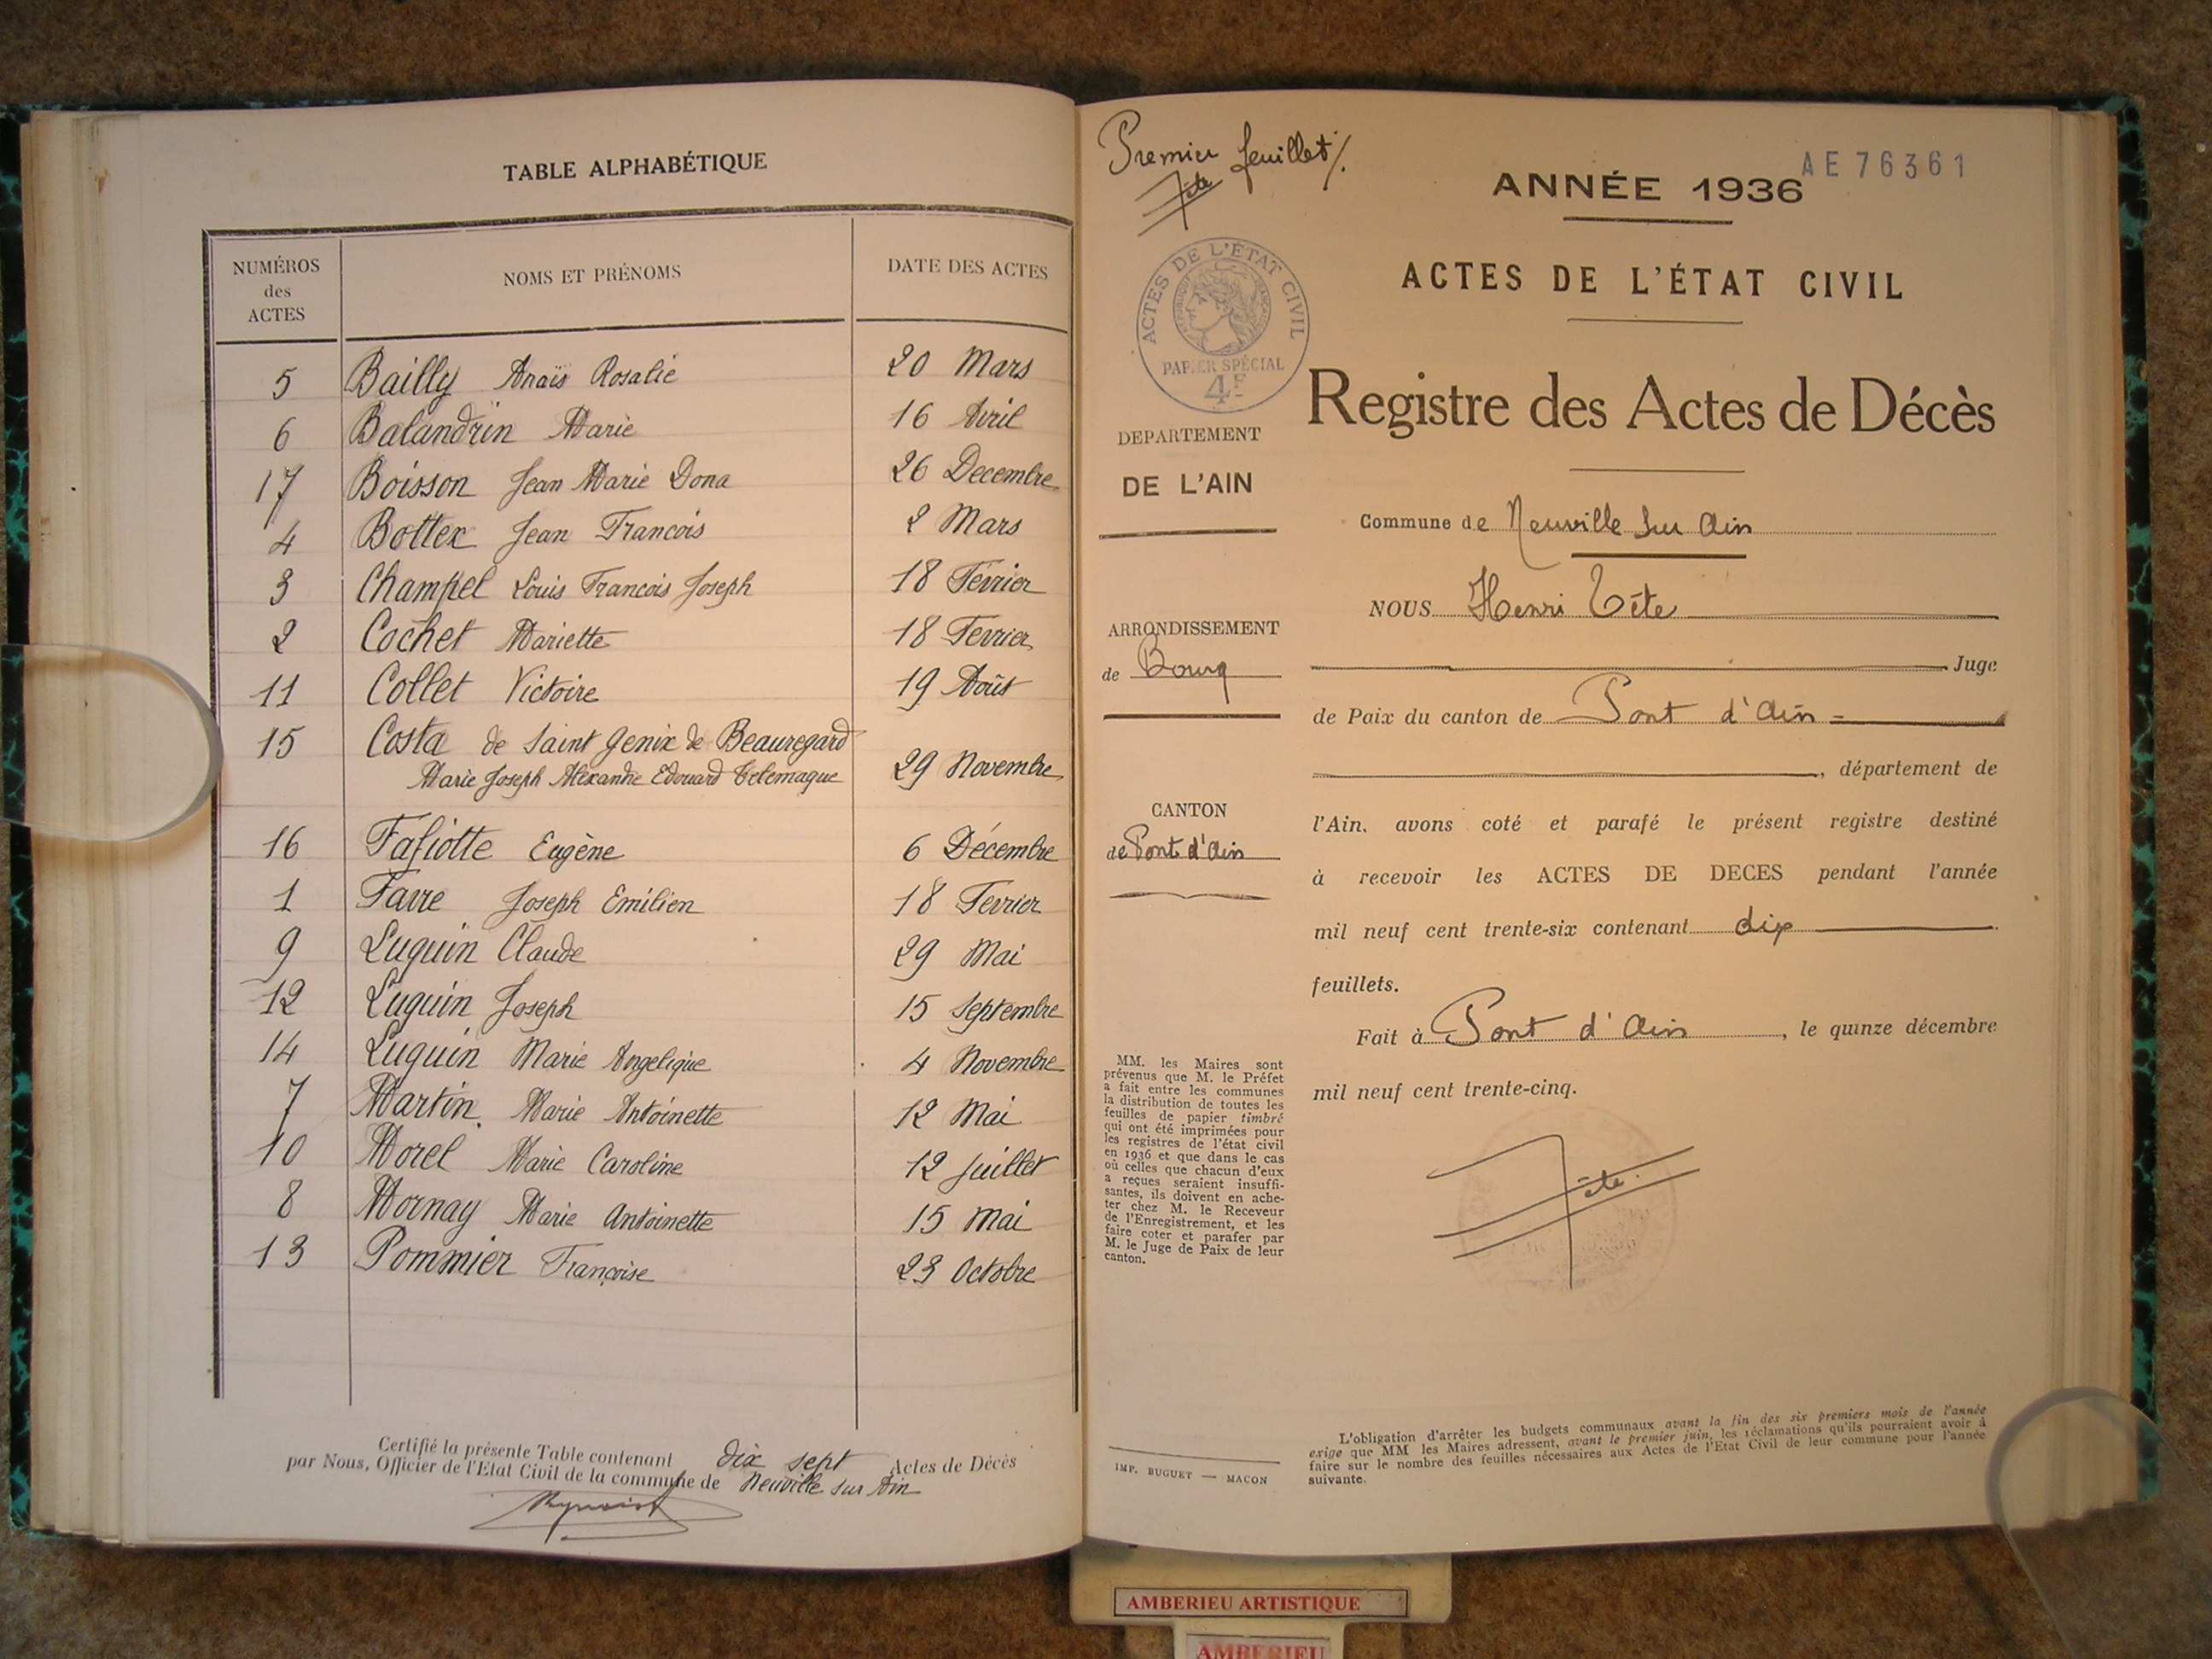 TABLE ALPHABÉTIQUE
NUMÉROS des ACTES
NOMS ET PRÉNOMS
DATE DES ACTES
5 Bailly Anaïs Rosalie 20 Mars
6 Balandrin Marie 16 Avril
17 Boisson Jean Marie Dona 26 Decembre
4 Bottex Jean Francois 2 Mars
3 Champel Louis Francois Joseph 18 Février
2 Cochet Mariette 18 Fevrier
11 Collet Victoire 19 Août
15 Costa de Saint Genix de Beauregard
Marie Joseph Alexandre Edouard Telemaque 29 Novembre
16 Fafiotte Eugène 6 Décembre
1 Favre Joseph Emilien 18 Fevrier
9 Luguin Claude 29 Mai
12 Luguin Joseph 15 Septembre
14 Luguin Marie Angelique 4 Novembre
7 Martin Marie Antoinette 12 Mai
10 Morel Marie Caroline 12 Juillet
8 Mornay Marie Antoinette 15 Mai
13 Pommier Françoise 23 Octobre
Certifié la présente Table contenant dix sept Actes de Décès
par Nous, Officier de l'Etat Civil de la commune de Neuville sur Ain
Premier feuillet/.
Tête
AE 76361
ANNÉE 1936
ACTES DE L'ÉTAT CIVIL
ACTES DE L'ÉTAT CIVIL
REPUBLIQUE FRANÇAISE
PAPIER SPÉCIAL
4F
Registre des Actes de Décès
DEPARTEMENT
DE L'AIN
ARRONDISSEMENT
de Bourg
CANTON
de Pont d'Ain
Commune de Neuville sur Ain
NOUS Henri Tête
Juge
de Paix du canton de Pont d'Ain
, département de
l'Ain, avons coté et parafé le présent registre destiné
à recevoir les ACTES DE DECES pendant l'année
mil neuf cent trente-six contenant dix
feuillets.
Fait à Pont d'Ain, le quinze décembre
mil neuf cent trente-cinq.
Tête
MM. les Maires sont
prévenus que M. le Préfet
a fait entre les communes
la distribution de toutes les
feuilles de papier timbré
qui ont été imprimées pour
les registres de l'état civil
en 1936 et que dans le cas
où celles que chacun d'eux
a reçues seraient insuffi-
santes, ils doivent en ache-
ter chez M. le Receveur
de l'Enregistrement, et les
faire coter et parafer par
M. le Juge de Paix de leur
canton.
IMP. BUGUET — MACON
L'obligation d'arrêter les budgets communaux avant la fin des six premiers mois de l'année
exige que MM les Maires adressent, avant le premier juin, les réclamations qu'ils pourraient avoir à
faire sur le nombre des feuilles nécessaires aux Actes de l'Etat Civil de leur commune pour l'année
suivante.
AMBERIEU ARTISTIQUE
AMBERIEU